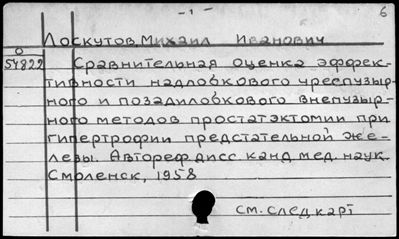 - 1 -
6
Лоскутов, Михаил Иванович
О
54822
Сравнительная оценка эффек-
тивности надлобкового чреспузыр-
ного и позадилобкового внепузыр-
ного методов простатэктомии при
гипертрофии предстательной же-
лезы. Автореф дисс канд мед. наук.
Смоленск, 1958
см. след карт